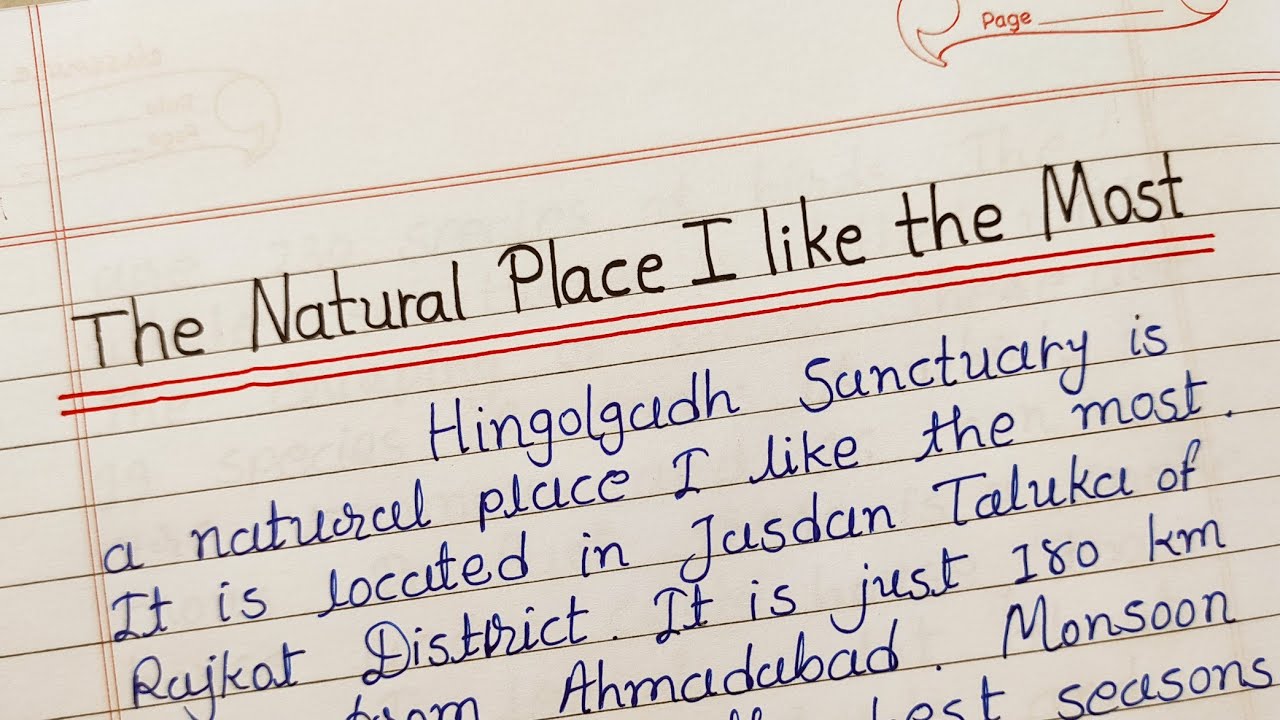 Page
The Natural Place I like the Most
Hingolgadh Sanctuary is
a natural place I like the most.
It is located in Jasdan Taluka of
Rajkat District. It is just 180 km
from Ahmadabad. Monsoon
best seasons